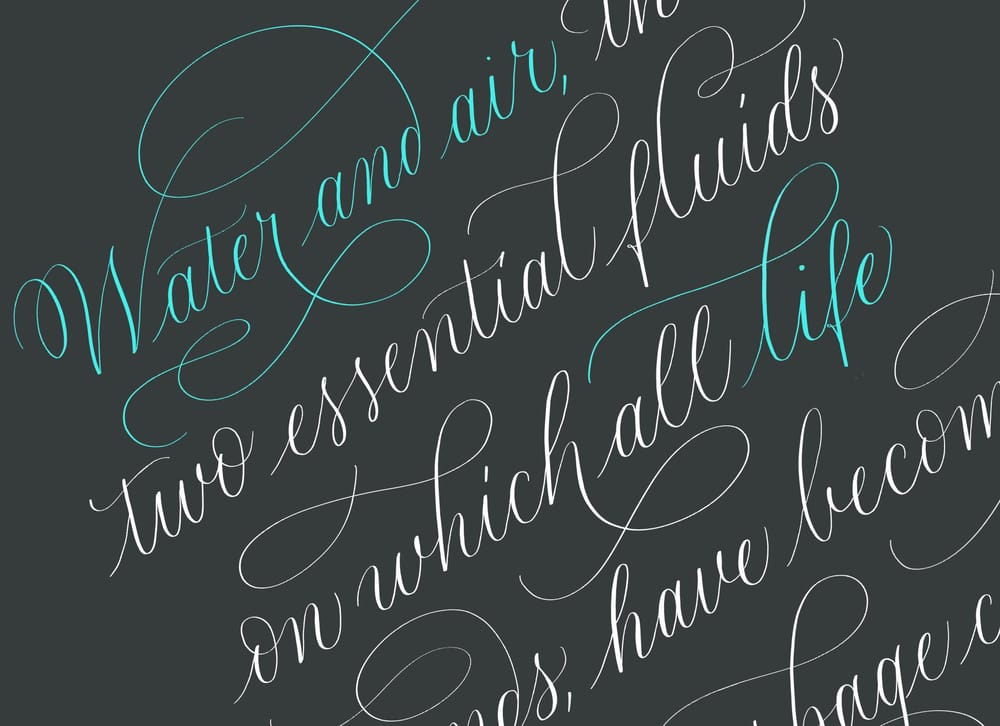 Water and air, th
two essential fluids
on which all life
nds, have becom
bage c